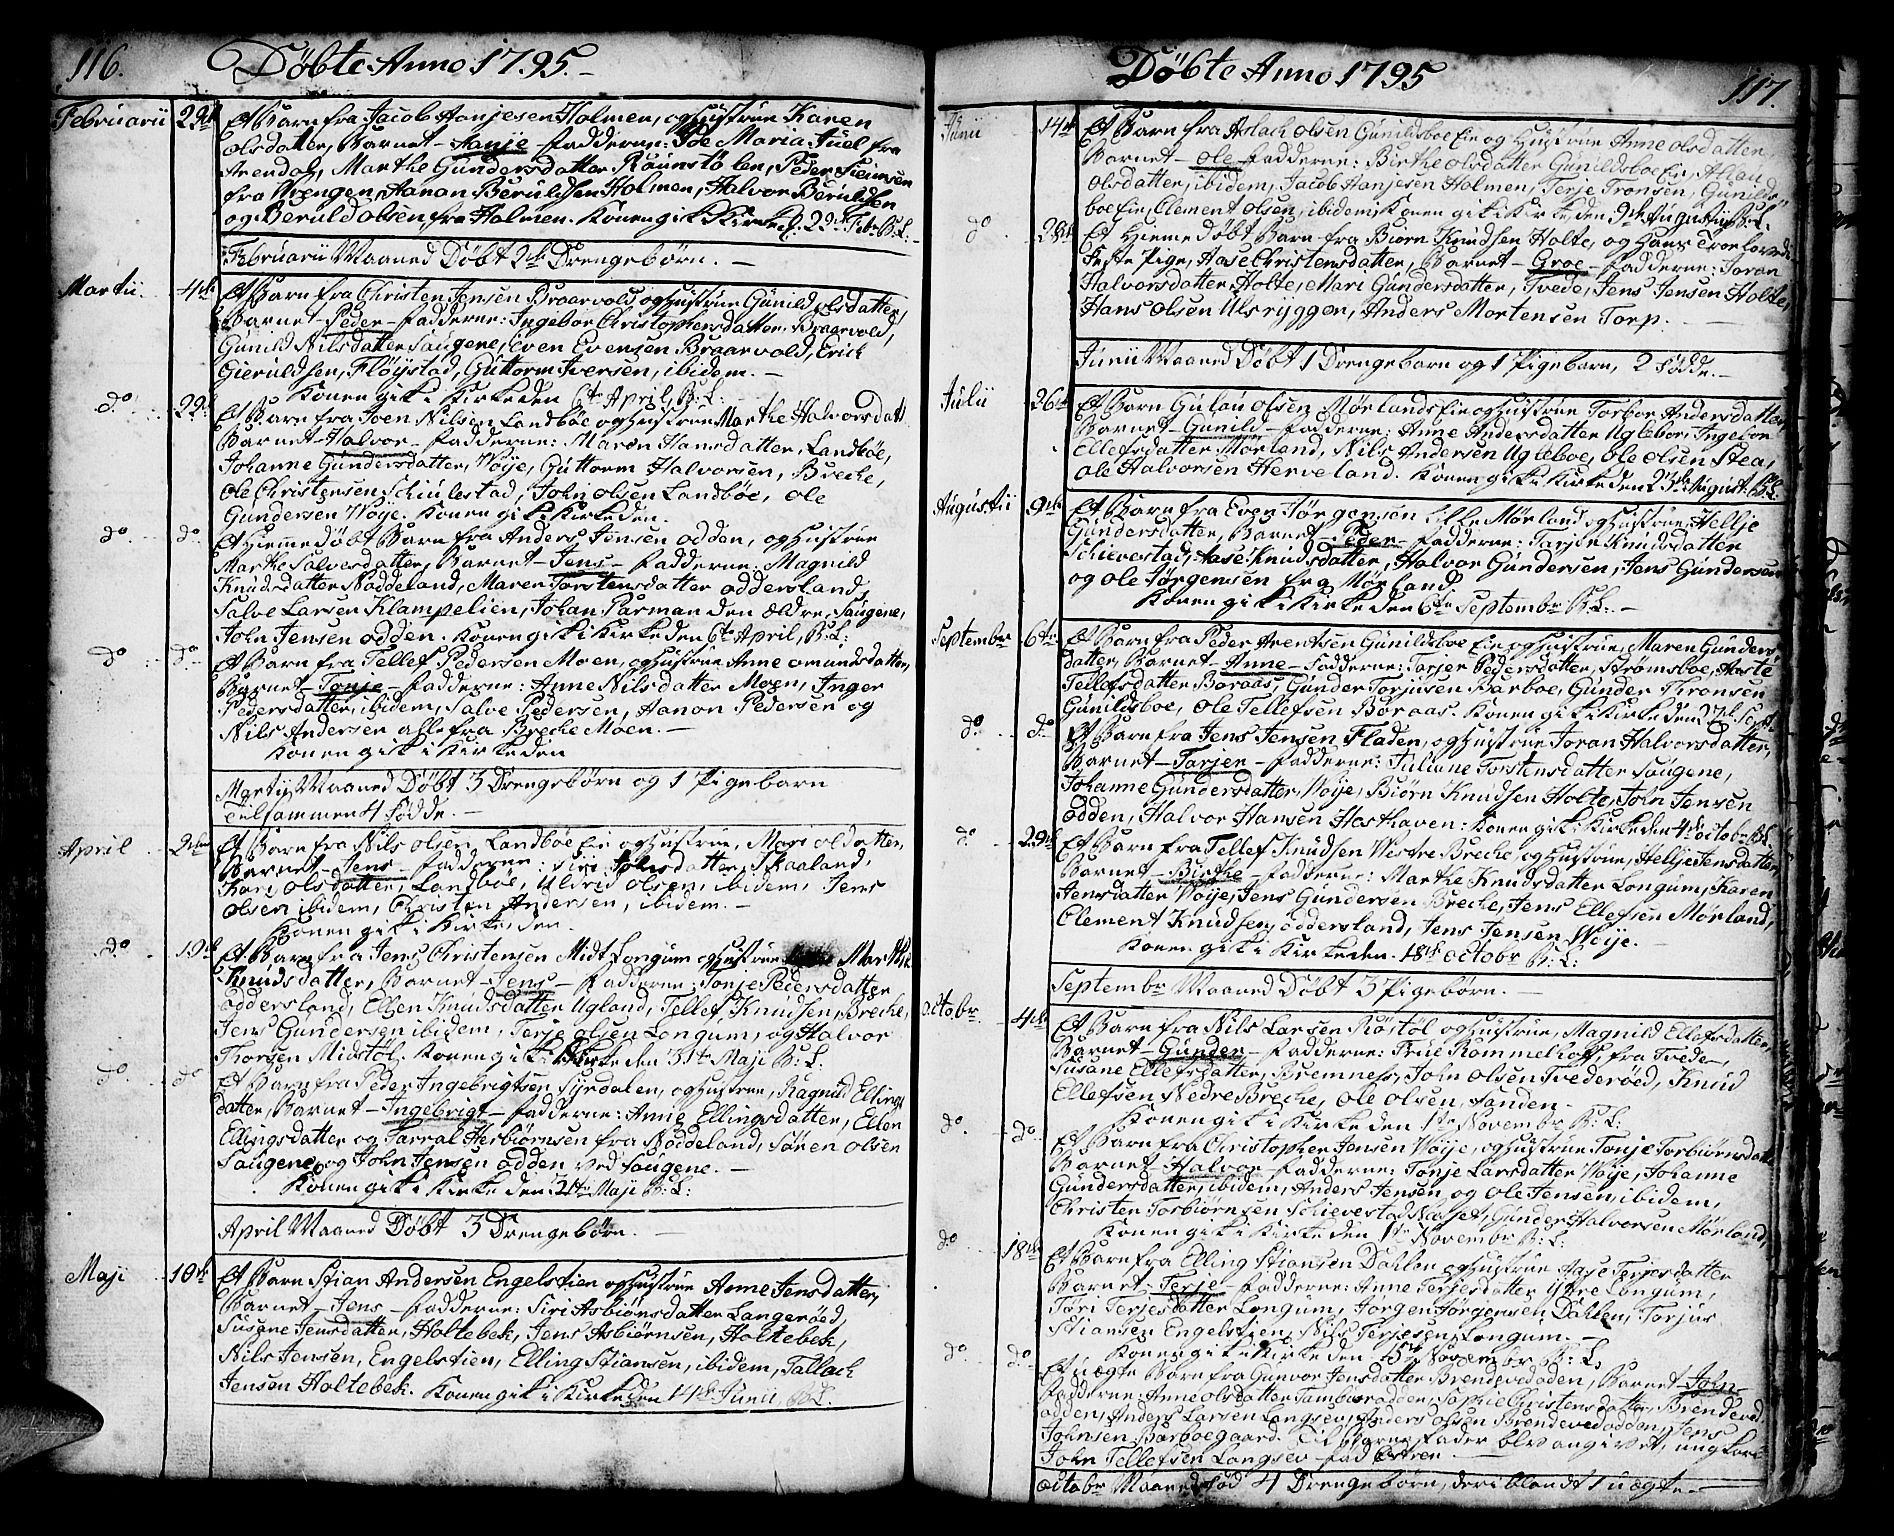 116.
Döbte Anno 1795.
Februarii 22de Et Barn fra Jacob Hanjesen Holmen, og Hustrue Karen
Olsdatter, Barnet - Hanje - Fadderne: Maria Juel fra
Arendal, Marthe Gundersdatter, Peder
fra Vrengen, Hanon Beruldsen Holmen, Halvor Beruldsen
og Beruld Olsen fra Holmen. Konen gik i Kirke d. 22de Febr. B: L:
Februarii Maaned Döbt 2de Drengebörn.
Martii. 4de Et Barn fra Christen Jensen Braarvold og Hustrue Gunild Olsdatter,
Barnet - Peder - Fadderne: Ingebor Christophersdatter, Braarvold,
Gunild Nilsdatter Saugene, Even Evensen Braarvold, Erich
Gieruldsen, Flöystad, Guttorm Iversen, ibidem.
Konen gik i Kirke den 6te April, B: L:
do. 22de Et Barn fra Joen Nilsen Landböe og Hustrue Marthe Halvorsdatt
Barnet - Halvor - Fadderne: Maren Hansdatter, Landböe,
Johanne Gundersdatter, Vöye, Guttorm Halvorsen, Breche,
Ole Christensen Schiulestad, John Olsen Landböe, Ole
Gundersen Vöye. Konen gik i Kirke den.
do. do. Et Hiemme döbt Barn fra Anders Jensen Odden, og Hustrue
Marthe Salvesdatter, Barnet - Jens - Fadderne: Magnild
Knudsdatter Nöddeland, Maren Torstensdatter Oddersland,
Salve Larsen Klampelien, Johan Parman den ældre, Saugene,
John Jensen Odden. Konen gik i Kirke den 6te April, B: L:
do. do. Et Barn fra Tellef Pedersen Moen, og Hustrue Anne Omundsdatter,
Barnet - Tonje - Fadderne: Anne Nilsdatter Moen, Inger
Pedersdatter, ibidem, Salve Pedersen, Hanon Pedersen og
Nils Andersen alle fra Breche Moen.
Konen gik i Kirke den
Martii Maaned Döbt 3 Drengebörn og 1 Pigebarn
Tilsammen 4 Födde.
April Et Barn fra Nils Olsen, Landböe Eie og Hustrue, Mari Olsdatter,
Barnet - Jens - Fadderne: Siri datter, Skaaland,
Kari Olsdatter, Landböe, Uldrid Olsen, ibidem, Jens
Olsen ibidem, Christen Andersen, ibidem.
Konen gik i Kirke den.
do 19de Et Barn fra Jens Christensen Midt Longum og Hustrue Marthe
Knudsdatter, Barnet - Jens - Fadderne: Tonje Pedersdatter
Oddersland, Ellen Knudsdatter Ugland, Tellef Knudsen, Breche,
Jens Gundersen ibidem, Terje Olsen Longum, og Halvor
Thorsen Midstöl. Konen gik i Kirke den 31te Maji B: L:
do. do Et Barn fra Peder Ingebrigtsen Syrdalen, og Hustrue, Ragnild Ellings
datter, Barnet - Ingebrigt - Fadderne: Anne Ellingsdatter, Ellen
Ellingsdatter og Tarral Herbiörnsen fra Nöddeland, Sören Olsen
Saugene og John Jensen Odden ved Saugene.
Konen gik i Kirke den 21de Maji B: L:
April Maaned Döbt 3 Drengebörn.
Maji 10de Et Barn Stian Andersen Engelstien og Hustrue Anne Jensdatter,
Barnet - Jens - Fadderne: Siri Asbiörnsdatter Langeröed,
Susane Jensdatter, Holtebek, Jens Asbiörnsen, Holtebek,
Nils Jensen, Engelstien, Elling Stiansen, ibidem, Tallach
Jensen Holtebek. Konen gik i Kirke den 14de Junii, B: L:
Döbte Anno 1795
117.
Junii 14de Et Barn fra Aslach Olsen Gunildsboe Eie og Hustrue Anne Olsdatter,
Barnet - Ole - Fadderne: Birthe Olsdatter Gunildsboe Eie,
Olsdatter, ibidem, Jacob Hanjesen Holmen, Terje Tronsen, Gunilds-
boe Eie, Clement Olsen, ibidem, Konen gik i Kirke den 9de Augusti B: L:
do. 28de Et Hieme döbt Barn fra Biörn Knudsen Holte, og Hans Trolovede
Feste Pige, Aase Christensdatter, Barnet - Groe - Fadderne: Joran
Halvorsdatter Holte, Mari Gundersdatter, Tvede, Jens Jensen Holte,
Hans Olsen Ulsryggen, Anders Mortensen Torp.
Junii Maaned Döbt 1 Drengebarn og 1 Pigebarn, 2 Födde.
Julii 26de Et Barn Gulau Olsen Mörlands Eie og Hustrue Torbor Andersdatter,
Barnet - Gunild - Fadderne: Anne Andersdatter Ugleboe, Ingebor
Ellefsdatter Mörland, Nils Andersen Ugleboe, Ole Olsen Stea,
Ole Halvorsen Herveland. Konen gik i Kirke den 23de August. B: L:
Augustii 9de Et Barn fra Even Jörgensen Lille Mörland og Hustrue, Hellje
Gundersdatter, Barnet - Peder - Fadderne: Tarjer Knudsdatter
Schievestad, Aase Knudsdatter, Halvor Gundersen, Jens Gundersen
og Ole Jörgensen fra Mörland
Konen gik i Kirke den 6te Septembr B: L:
Septembr 6te Et Barn fra Peder Arentsen Gunildsboe Eie og Hustrue, Maren Gunders-
datter, Barnet - Anne - Fadderne: Tarjer Pedersdatter, Strömsboe, Aaste
Tellefsdatter Boraas, Gunder Torjusen Barboe, Gunder Tronsen
Gunildsboe, Ole Tellefsen Boraas. Konen gik i Kirke den 27de Sept.
do. do. Et Barn fra Jens Jensen Fladen, og Hustrue Joran Halvorsdatter,
Barnet - Tarjer - Fadderne: Juliane Torstensdatter Saugene,
Johanne Gundersdatter, Vöye, Biörn Knudsen Holte, John Jensen
Odden, Halvor Hansen Hasthaven: Konen gik i Kirke den 4de Octobr B: L:
do. 29de Et Barn fra Tellef Knudsen Vestre Breche, og Hustrue, Hellje Jensdatter,
Barnet - Birthe - Fadderne: Marthe Knudsdatter Longum, Karen
Jensdatter Vöye, Jens Gundersen Breche, Jens Ellefsen Mörland,
Clement Knudsen, Oddersland, Jens Jensen Vöye.
Konen gik i Kirke den 18de Octobr B: L:
Septembr Maaned Döbt 3 Pigebörn.
Octobr. 4de Et Barn fra Nils Larsen Röstöl og Hustrue, Magnild Ellefsdatter,
Barnet - Gunder - Fadderne: Frue Rommelhoff, fra Tvede,
Susane Ellefsdatter, Bremnes, John Olsen Tvederöed, Knud
Ellefsen Nedre Breche, Ole Olsen, Sanden.
Konen gik i Kirke den 1te Novembr B: L:
do. do. Et Barn fra Christopher Jensen Vöye, og Hustrue Tonje Torbiörnsdatt
Barnet - Halvor - Fadderne: Tonje Larsdatter Vöye, Johanne
Gundersdatter, ibidem, Anders Jensen, og Ole Jensen, ibidem,
Christen Torbiörnsen Schievestad Næsset, Gunder Halvorsen Mörland,
Konen gik i Kirke den 1te Novembr B: L:
do 18de Et Barn fra Elling Stiansen Dahlen og Hustrue Aase Terjesdatter
Barnet - Terje - Fadderne: Anne Terjesdatter Ytre Longum,
Tori Terjesdatter Longum, Jörgen Jörgensen, Dahlen, Torjus
Stiansen Engelstien, Nils Terjesen Longum.
Konen gik i Kirke den 15de Novembr B: L:
do. do. Et uægte Barn fra Gunvor Jensdatter Brendevedodden, Barnet - John
Fadderne: Anne Olsdatter Odden, Sophie Christensdatter, Brendeved
Odden, Anders Larsen Langsev, Anders Olsen Brendevedodden, Jens
Johnsen Barboegaard. Til Barnefader blev angivet, ungkarl
John Tellefsen Langsev
Octobr Maaned föd 4 Drengebörn, deri blandt 1 uægte.